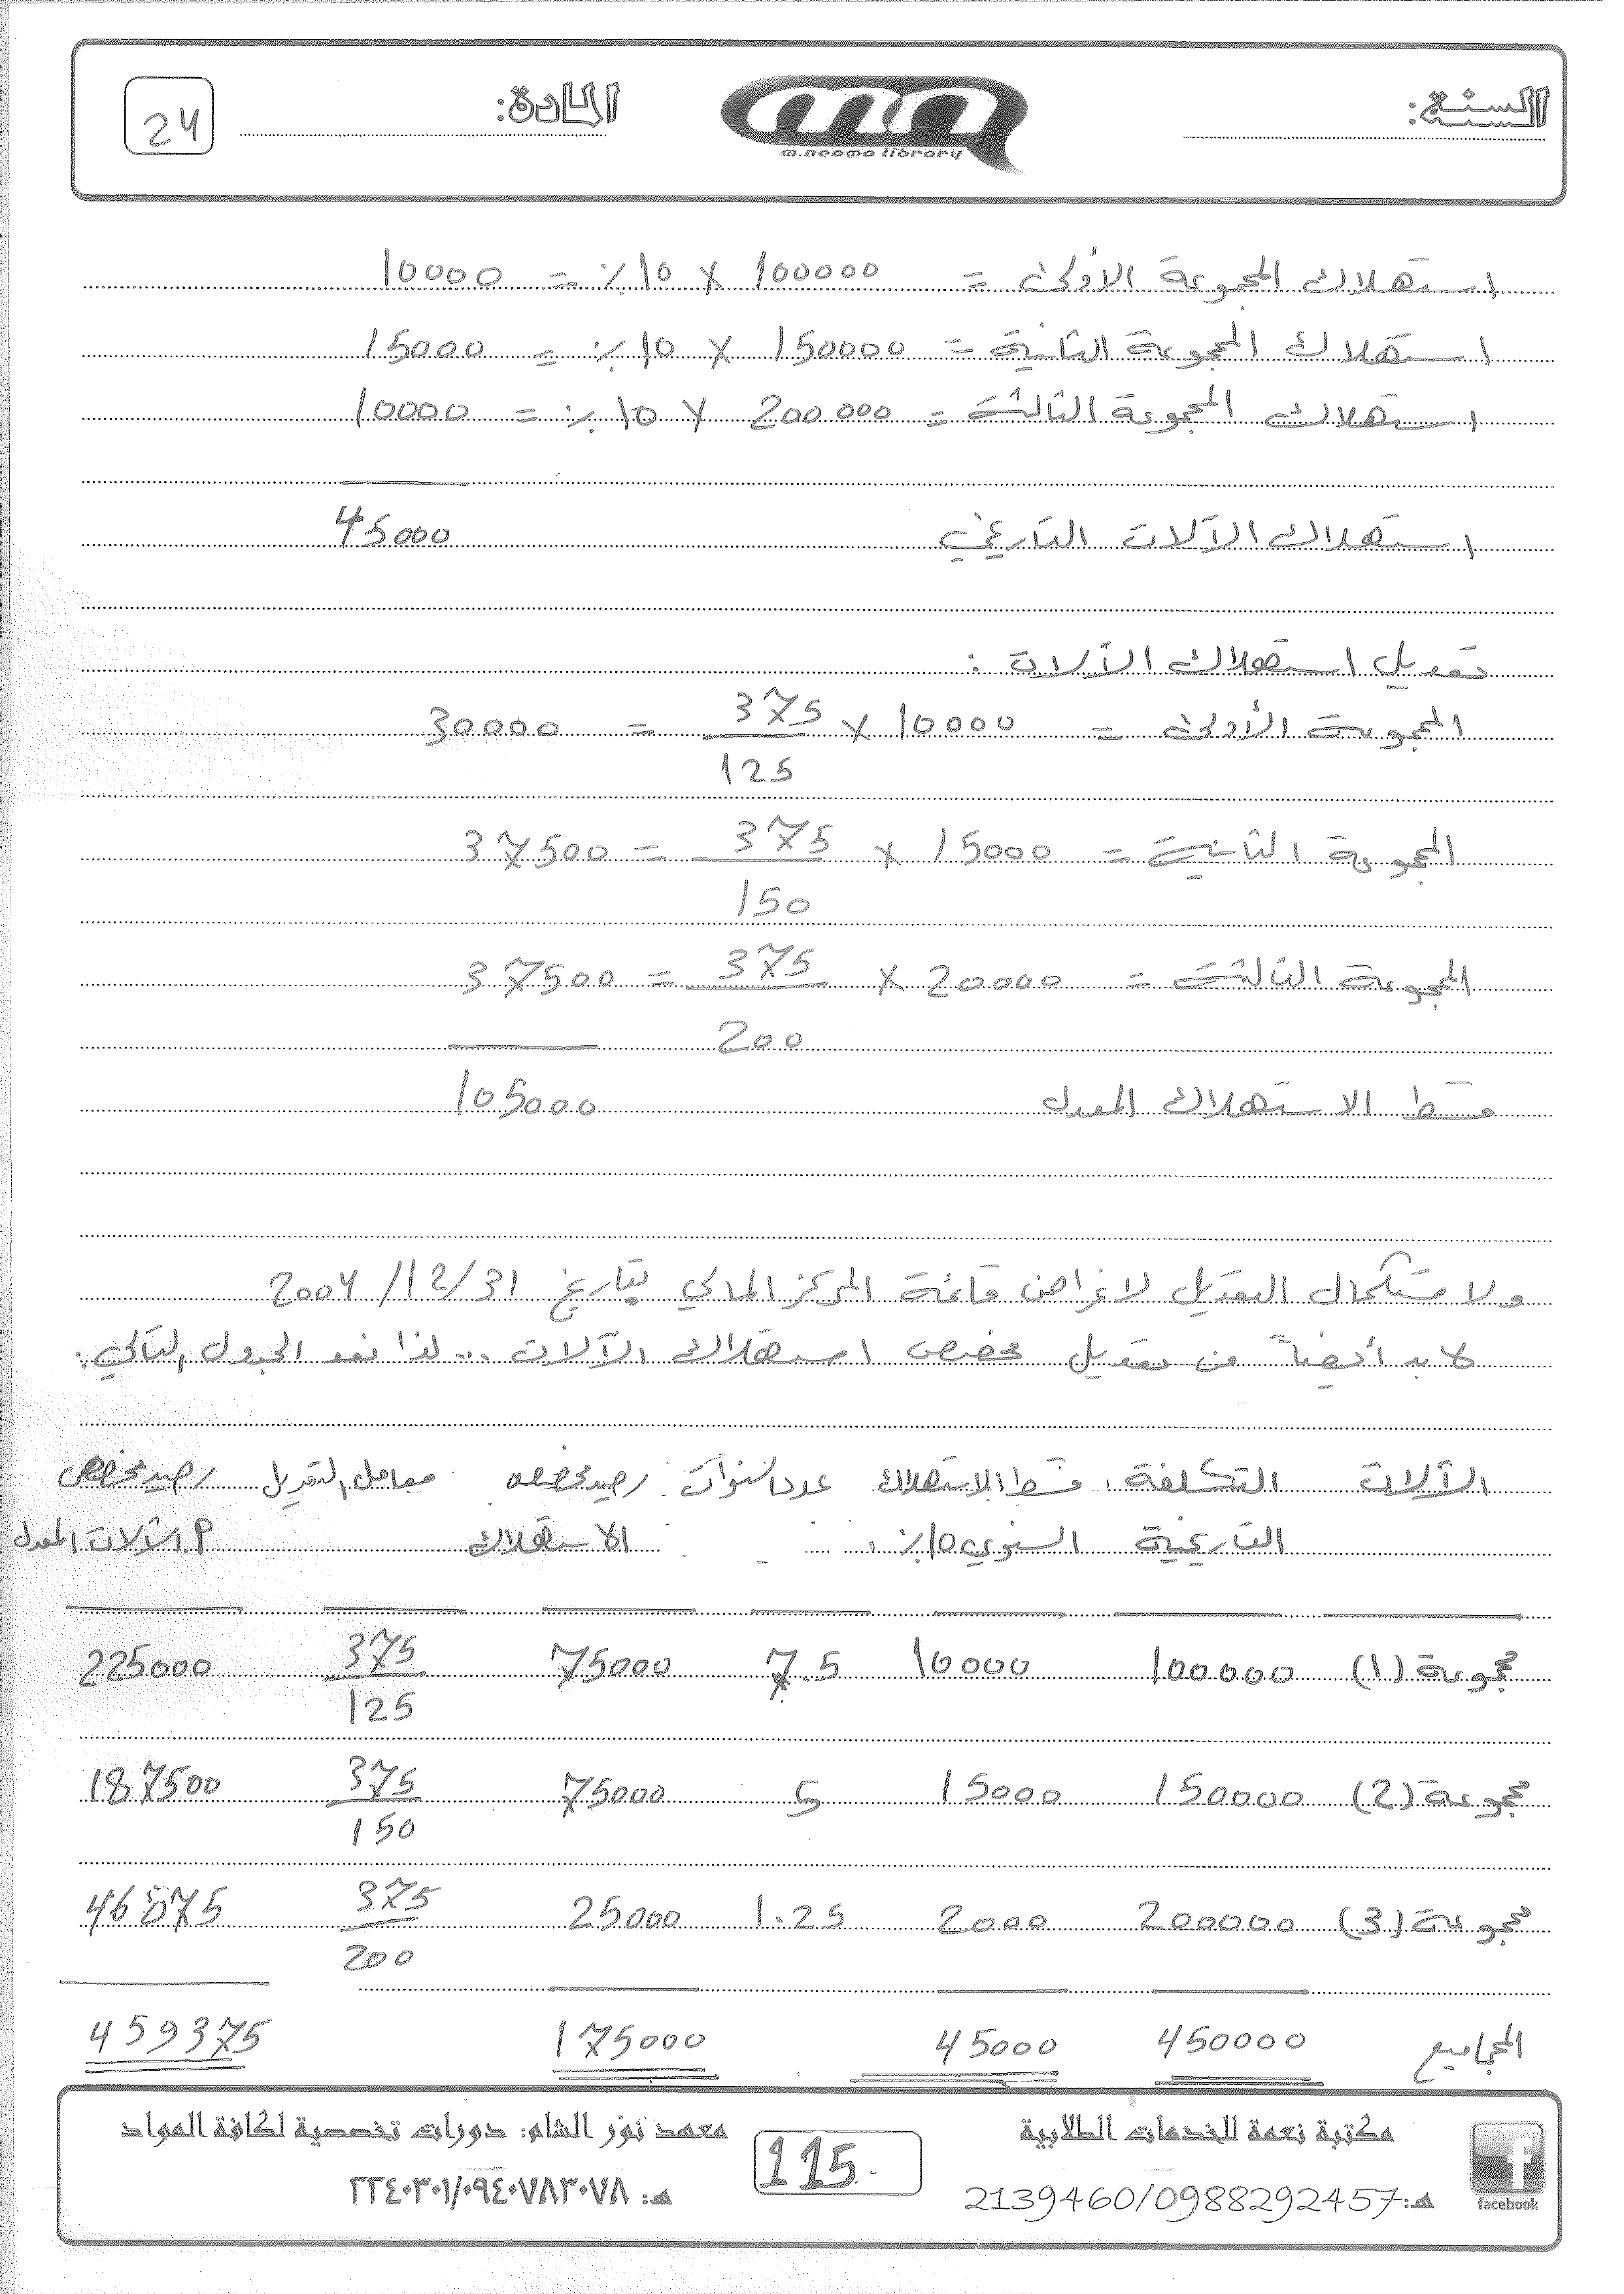 السنة: المادة: 24
m.neama library
استهلاك المجموعة الأولى = 100000 × 10٪ = 10000
استهلاك المجموعة الثانية = 150000 × 10٪ = 15000
استهلاك المجموعة الثالثة = 200000 × 10٪ = 10000
استهلاك الآلات التاريخي 45000
تعديل استهلاك الآلات :
المجموعة الأولى = 10000 × 375/125 = 30000
المجموعة الثانية = 15000 × 375/150 = 37500
المجموعة الثالثة = 20000 × 375/200 = 37500
قسط الاستهلاك المعدل 105000
ولاستكمال التعديل لاغراض قائمة المركز المالي بتاريخ 31/12/2004
لا بد أيضاً من تعديل مخصص استهلاك الآلات ... لذا نعد الجدول التالي.
الآلات التكلفة قسط الاستهلاك عدد السنوات رصيد مخصص معامل التعديل رصيد مخصص
التاريخية السنوي 10٪ الاستهلاك م. الآلات المعدل
مجموعة (1) 100000 10000 7.5 75000 375/125 225000
مجموعة (2) 150000 15000 5 75000 375/150 187500
مجموعة (3) 200000 2000 1.25 25000 375/200 46875
المجاميع 450000 45000 175000 459375
facebook
مكتبة نعمة للخدمات الطلابية
هـ: 2139460/0988292457
115
معهد نور الشام: دورات تخصصية لكافة المواد
هـ: ٢٢٤٠٣٠١/٠٩٤٠٧٨٣٠٧٨